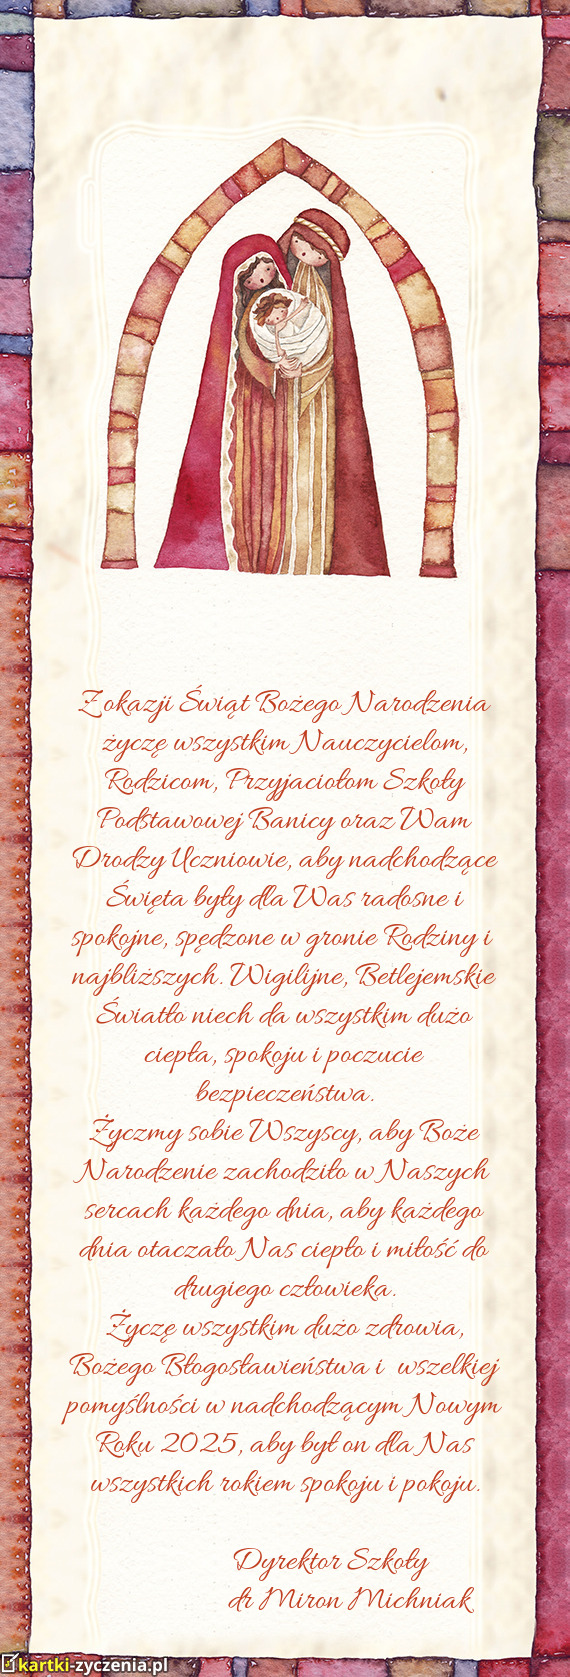 Z okazji Świąt Bożego Narodzenia
życzę wszystkim Nauczycielom,
Rodzicom, Przyjaciołom Szkoły
Podstawowej Banicy oraz Wam
Drodzy Uczniowie, aby nadchodzące
Święta były dla Was radosne i
spokojne, spędzone w gronie Rodziny i
najbliższych. Wigilijne, Betlejemskie
Światło niech da wszystkim dużo
ciepła, spokoju i poczucie
bezpieczeństwa.
Życzmy sobie Wszyscy, aby Boże
Narodzenie zachodziło w Naszych
sercach każdego dnia, aby każdego
dnia otaczało Nas ciepło i miłość do
drugiego człowieka.
Życzę wszystkim dużo zdrowia,
Bożego Błogosławieństwa i wszelkiej
pomyślności w nadchodzącym Nowym
Roku 2025, aby był on dla Nas
wszystkich rokiem spokoju i pokoju.
Dyrektor Szkoły
dr Miron Michniak
kartki-zyczenia.pl